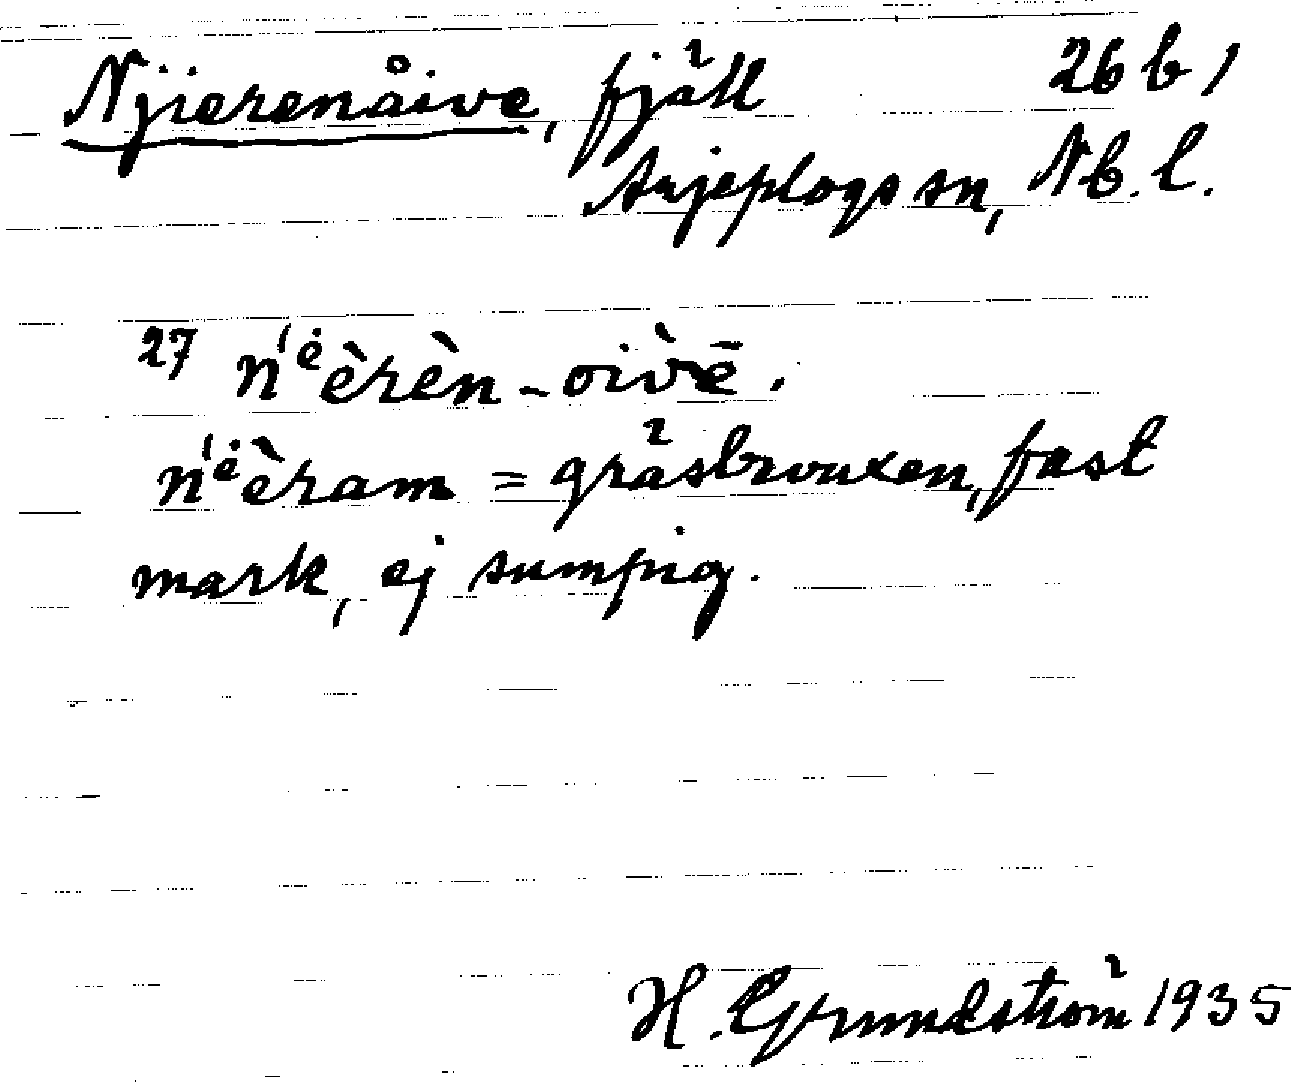 Njierenåive, fjäll 26 b 1
Arjeplogs sn, Nb. l.
27 ń ė̀èrèn-oiv̀ē.
ń ė̀èram = gräsbevuxen, fast
mark, ej sumpig.
H. Grundström 1935